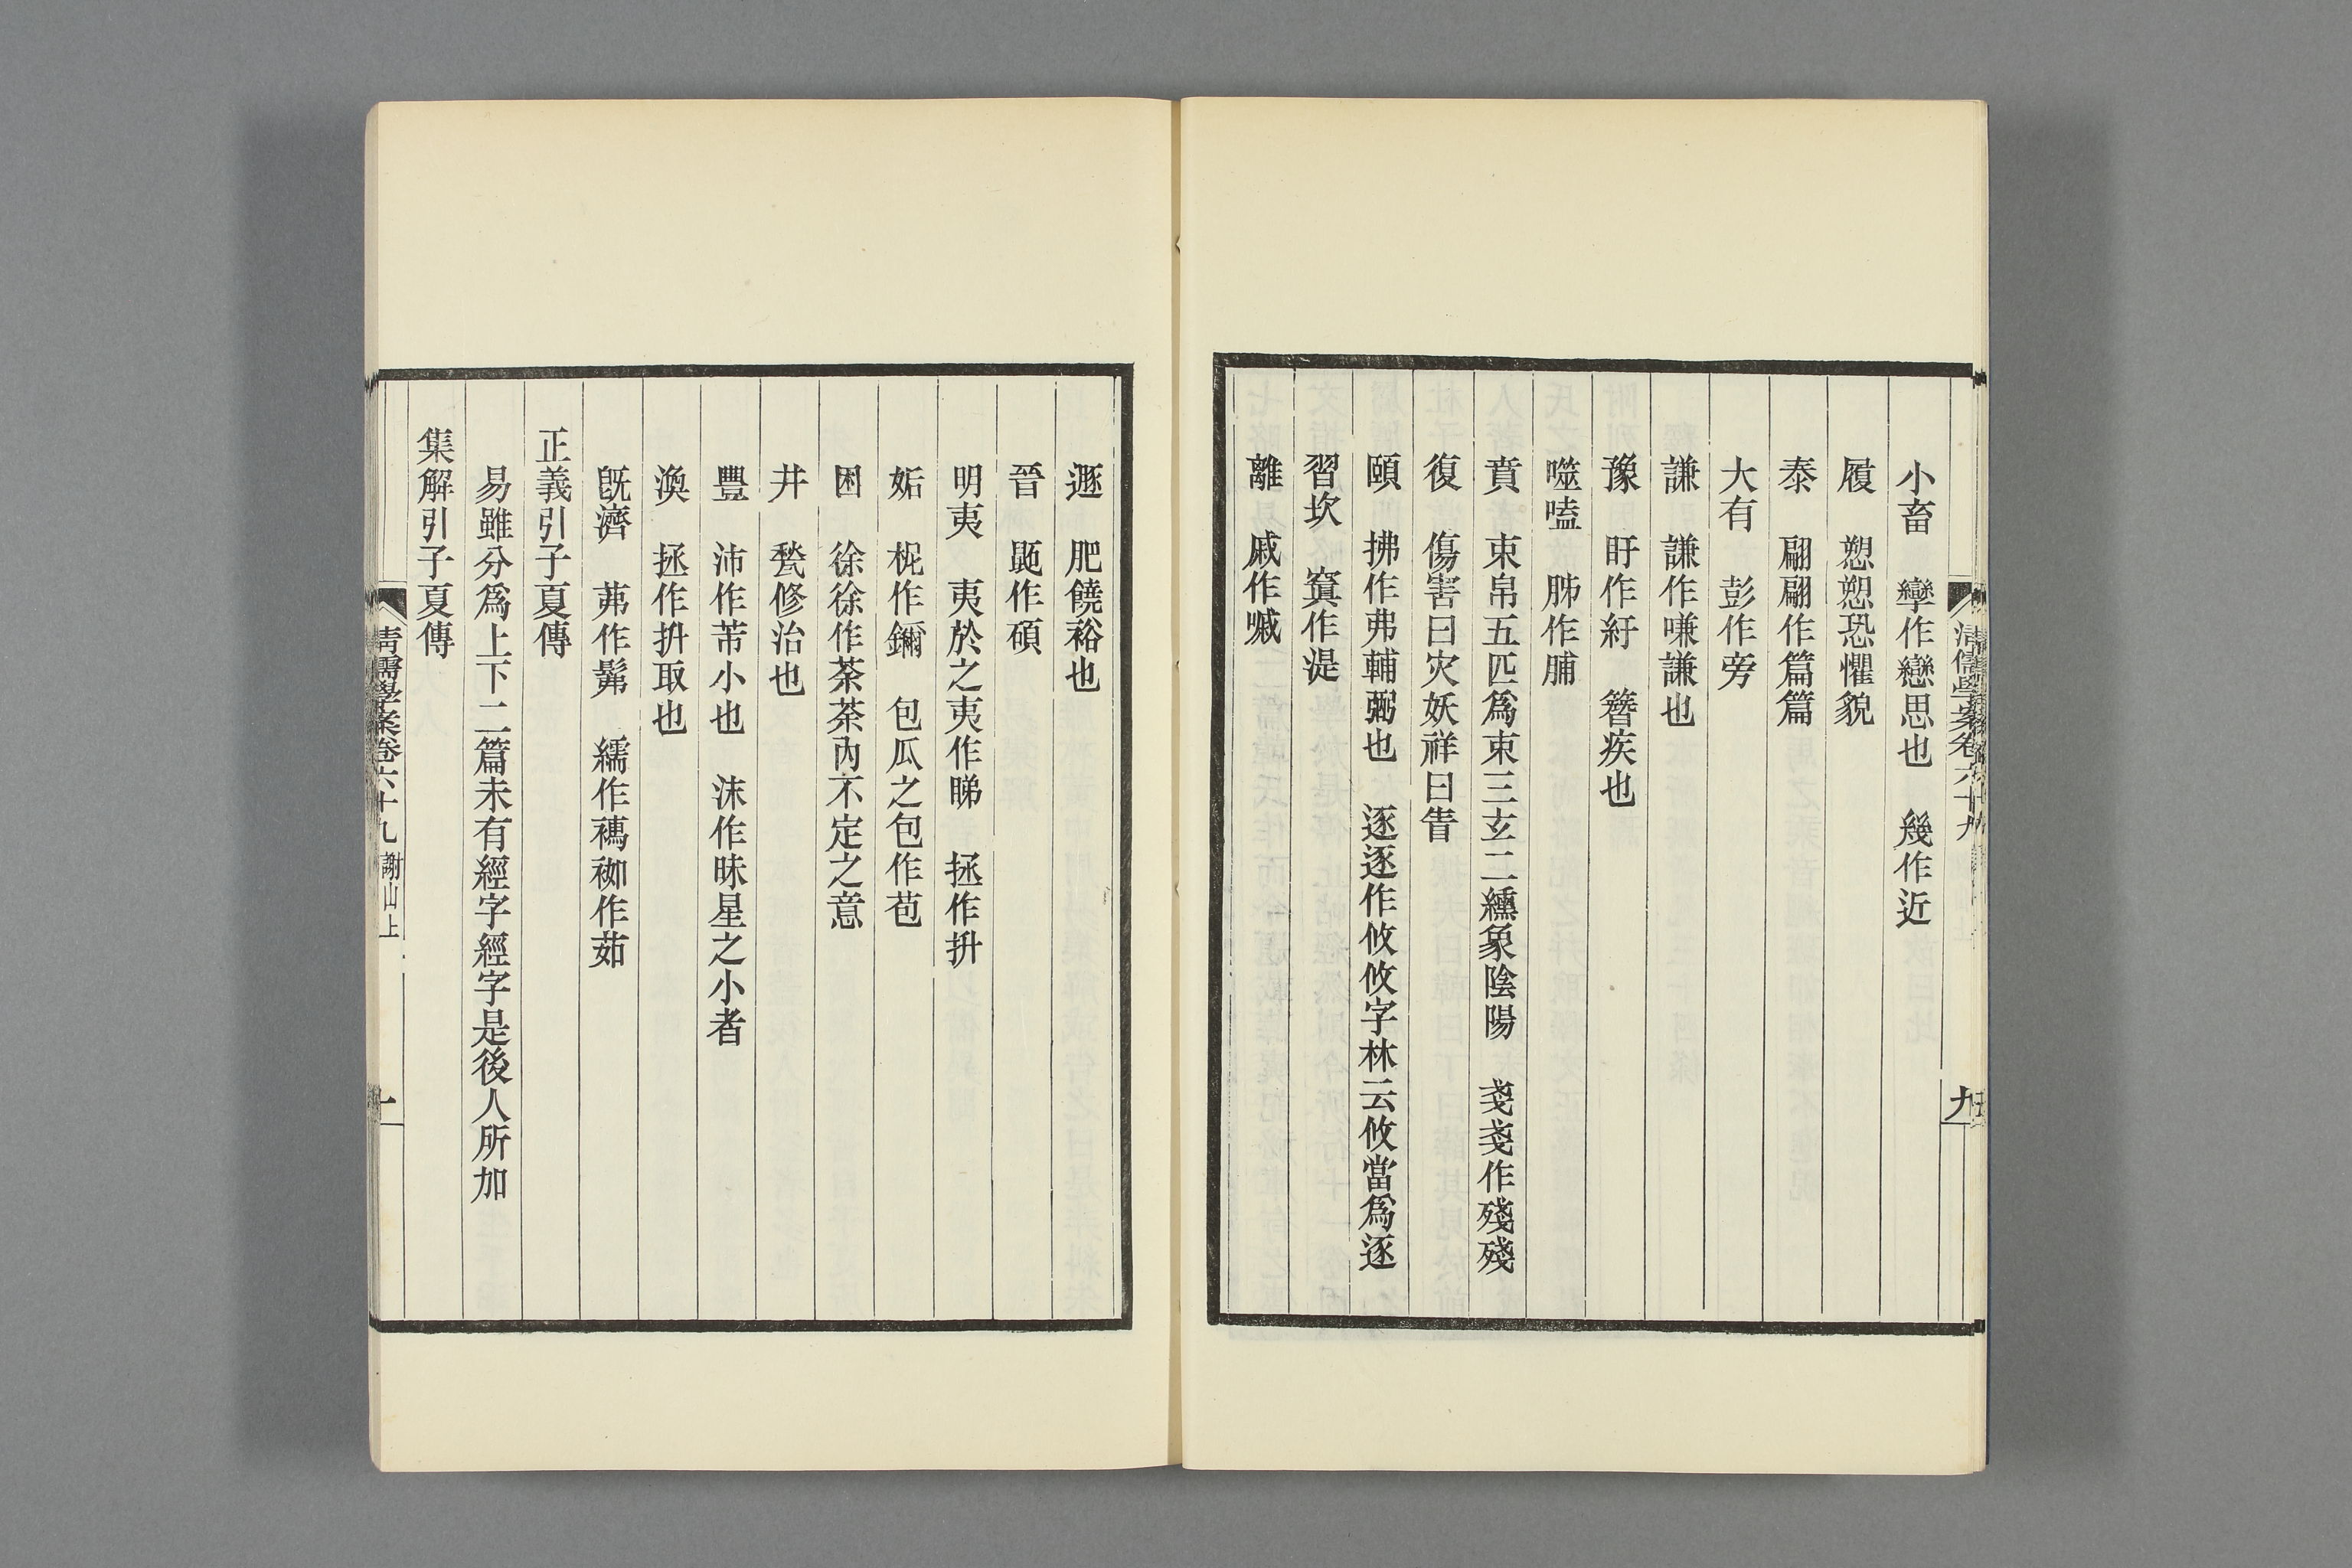 清儒學案卷六十九
九
小畜　攣作戀思也　幾作近
履　愬愬恐懼貌
泰　翩翩作篇篇
大有　彭作旁
謙　謙作嗛謙也
豫　盱作紆　簪疾也
噬嗑　胏作脯
賁　束帛五匹爲束三玄二纁象陰陽　戔戔作殘殘
復　傷害曰灾妖祥曰眚
頤　拂作弗輔弼也　逐逐作攸攸字林云攸當爲逐
習坎　寘作湜
離　戚作嘁
遯　肥饒裕也
晉　鼫作碩
明夷　夷於之夷作睇　拯作抍
姤　柅作鑈　包瓜之包作苞
困　徐徐作荼荼內不定之意
井　甃修治也
豐　沛作芾小也　沫作昧星之小者
渙　拯作抍取也
旣濟　茀作髴　繻作䙗袽作茹
正義引子夏傳
易雖分爲上下二篇未有經字經字是後人所加
集解引子夏傳
清儒學案卷六十九 謝山上